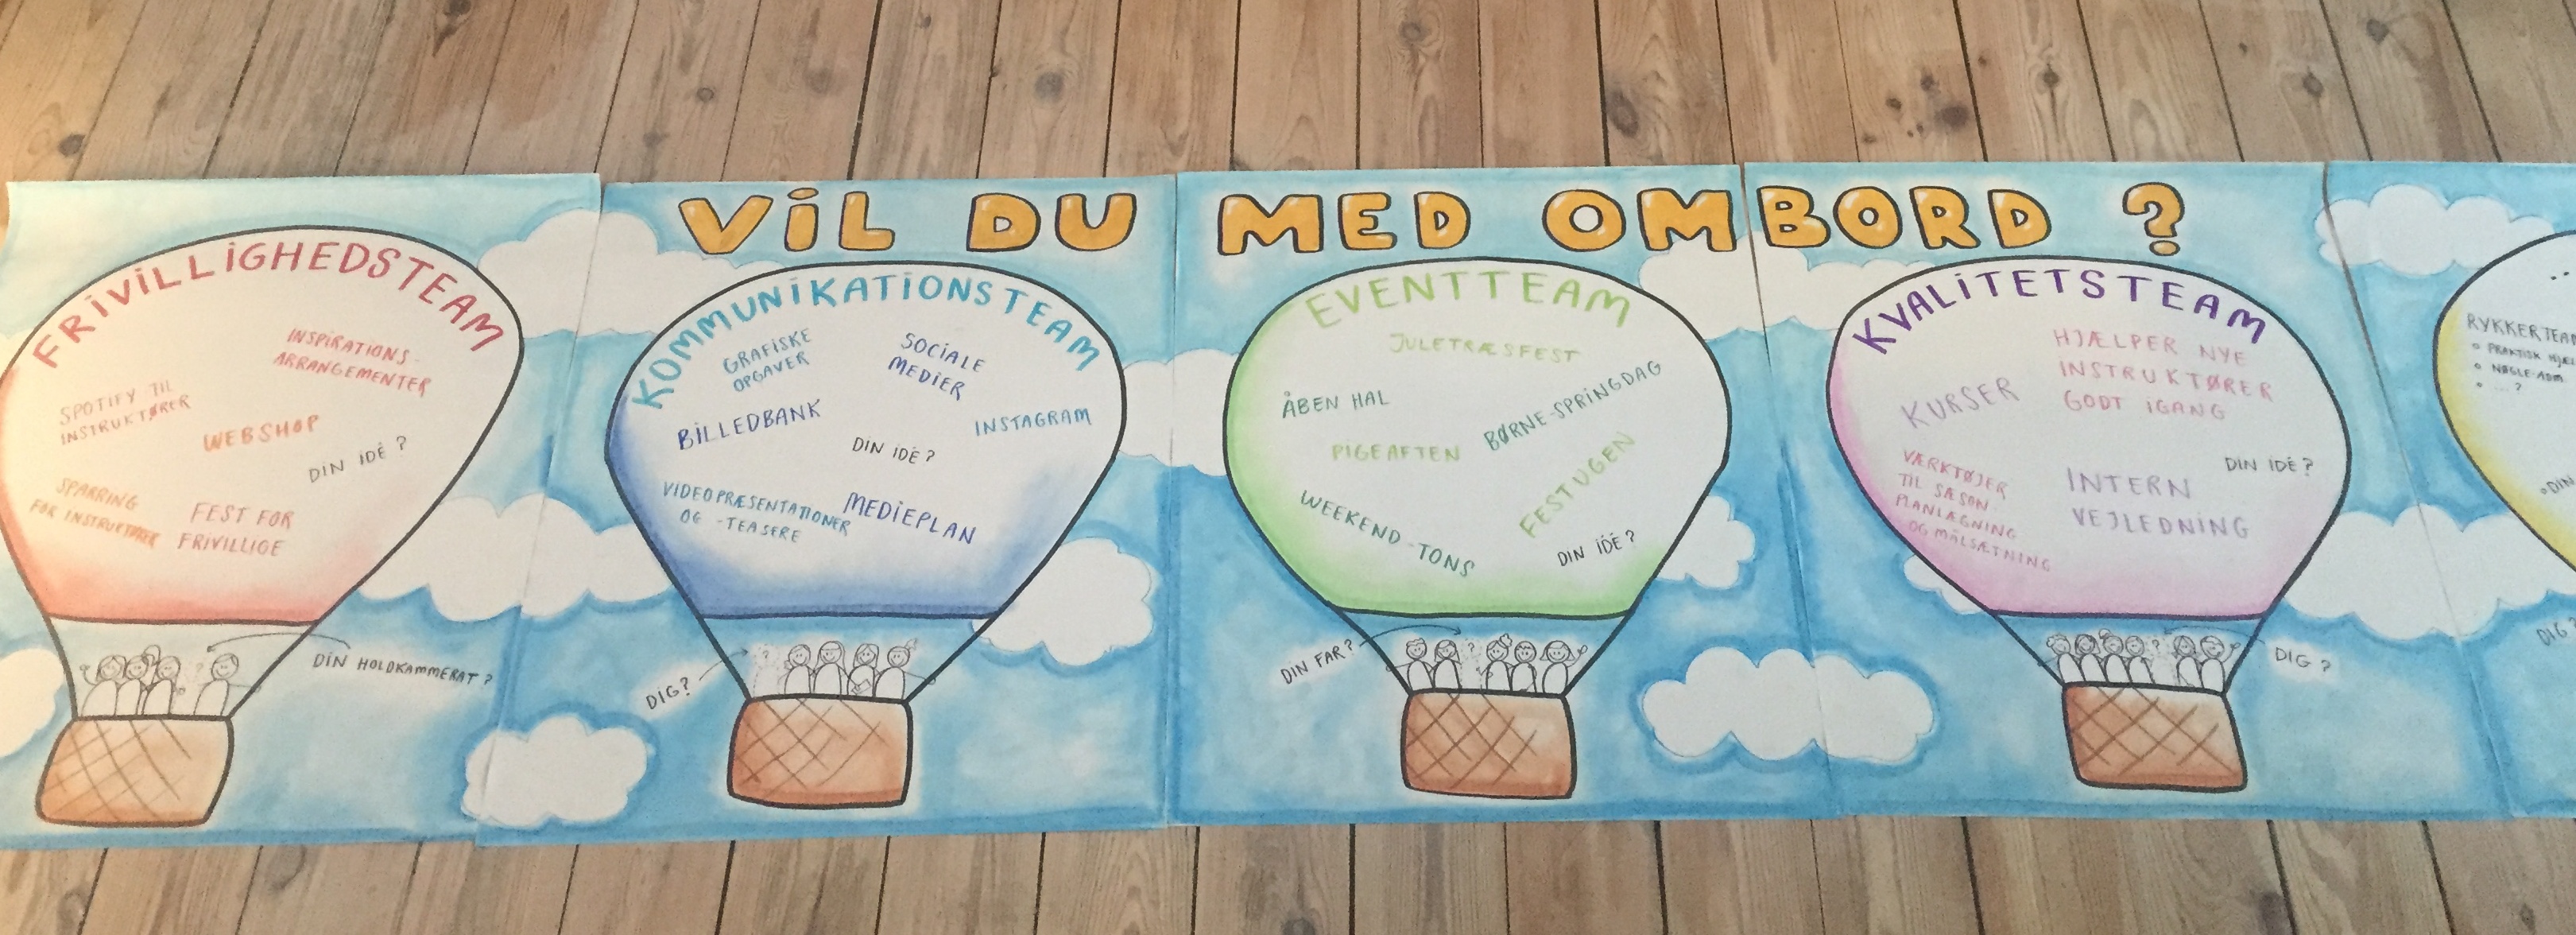 VIL DU MED OMBORD ?
FRIVILLIGHEDSTEAM
INSPIRATIONS-
ARRANGEMENTER
SPOTIFY TIL
INSTRUKTØRER
WEBSHOP
DIN IDÉ ?
SPARRING
FOR INSTRUKTØRER
FEST FOR
FRIVILLIGE
DIN HOLDKAMMERAT ?
KOMMUNIKATIONSTEAM
GRAFISKE
OPGAVER
SOCIALE
MEDIER
BILLEDBANK
INSTAGRAM
DIN IDÉ ?
VIDEOPRÆSENTATIONER
OG -TEASERE
MEDIEPLAN
DIG ?
EVENTTEAM
JULETRÆSFEST
ÅBEN HAL
BØRNE-SPRINGDAG
PIGEAFTEN
FESTUGEN
WEEKEND-TONS
DIN IDÉ ?
DIN FAR ?
KVALITETSTEAM
HJÆLPER NYE
INSTRUKTØRER
GODT IGANG
KURSER
DIN IDÉ ?
VÆRKTØJER
TIL SÆSON-
PLANLÆGNING
OG MÅLSÆTNING
INTERN
VEJLEDNING
DIG ?
RYKKERTEAM
PRAKTISK
NØGLE-ADM.
... ?
DIN
DIG ?